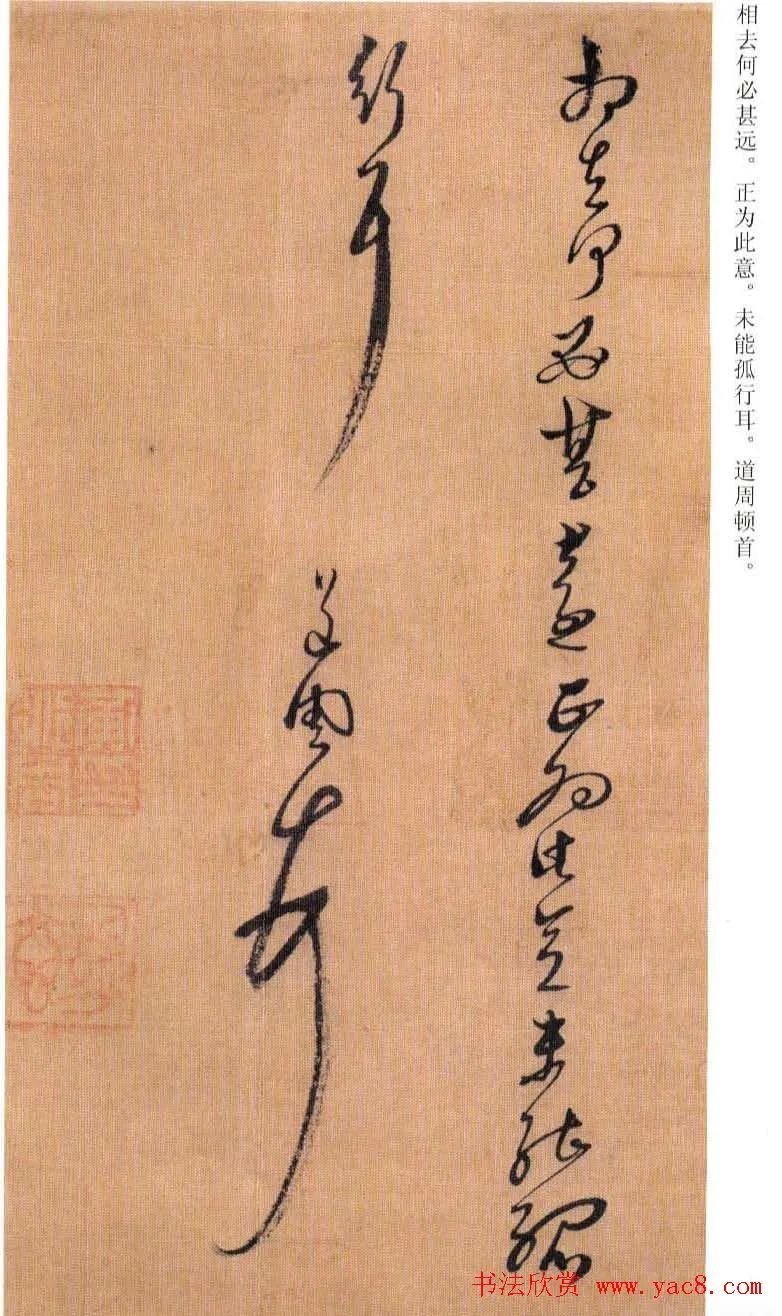 相去何必甚远。正为此意。未能孤行耳。道周顿首。
相去何必甚遠正為此意未能孤
行耳 道周頓首
书法欣赏 www.yac8.com